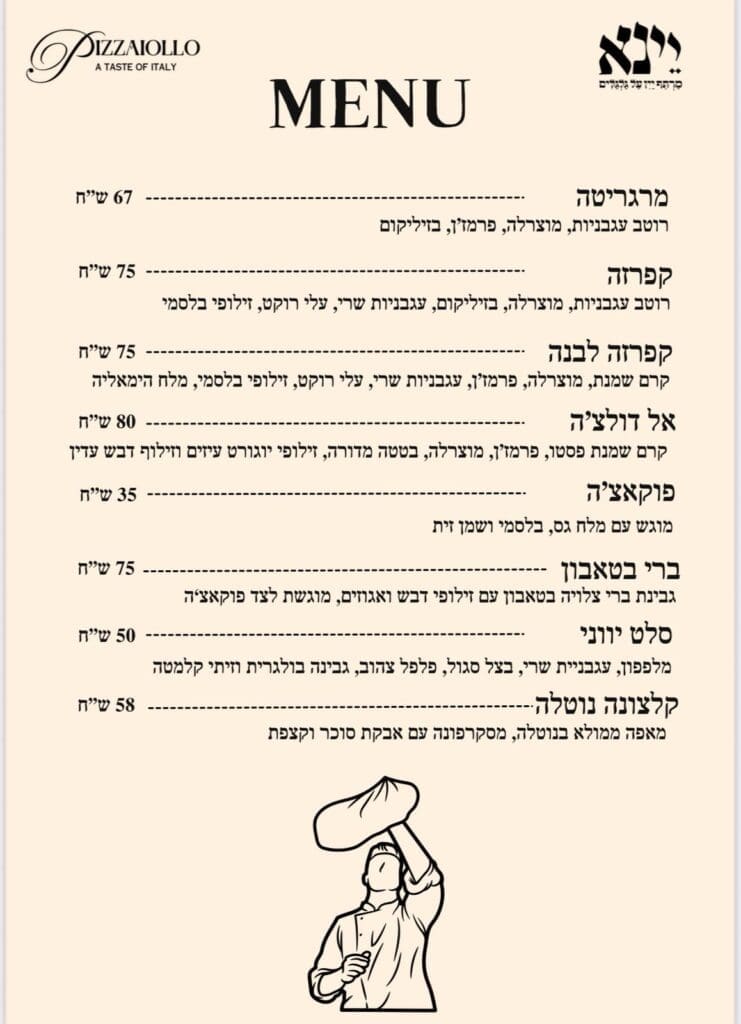 PIZZAIOLLO
A TASTE OF ITALY
יֵינָא
מַרְתֵּף יַיִן עַל גַּלְגַּלִּים
MENU
מרגריטה ---------- 67 ש"ח
רוטב עגבניות, מוצרלה, פרמז'ן, בזיליקום
קפרזה ---------- 75 ש"ח
רוטב עגבניות, מוצרלה, בזיליקום, עגבניות שרי, עלי רוקט, זילופי בלסמי
קפרזה לבנה ---------- 75 ש"ח
קרם שמנת, מוצרלה, פרמז'ן, עגבניות שרי, עלי רוקט, זילופי בלסמי, מלח הימאליה
אל דולצ'ה ---------- 80 ש"ח
קרם שמנת פסטו, פרמז'ן, מוצרלה, בטטה מדורה, זילופי יוגורט עיזים וזילוף דבש עדין
פוקאצ'ה ---------- 35 ש"ח
מוגש עם מלח גס, בלסמי ושמן זית
ברי בטאבון ---------- 75 ש"ח
גבינת ברי צלויה בטאבון עם זילופי דבש ואגוזים, מוגשת לצד פוקאצ'ה
סלט יווני ---------- 50 ש"ח
מלפפון, עגבניית שרי, בצל סגול, פלפל צהוב, גבינה בולגרית וזיתי קלמטה
קלצונה נוטלה ---------- 58 ש"ח
מאפה ממולא בנוטלה, מסקרפונה עם אבקת סוכר וקצפת